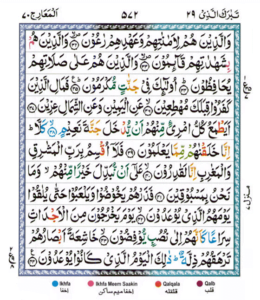 تَبٰرَكَ الَّذِىْ ٢٩ ٥٧٢ اَلْمَعَارِج ٧٠
وَالَّذِيْنَ هُمْ لِاَمٰنٰتِهِمْ وَعَهْدِهِمْ رٰعُوْنَ ۝٣٢ وَالَّذِيْنَ هُمْ
بِشَهٰدٰتِهِمْ قَآئِمُوْنَ ۝٣٣ وَالَّذِيْنَ هُمْ عَلٰى صَلَاتِهِمْ
يُحَافِظُوْنَ ۝٣٤ اُولٰٓئِكَ فِىْ جَنّٰتٍ مُّكْرَمُوْنَ ۝٣٥ فَمَالِ الَّذِيْنَ
كَفَرُوْا قِبَلَكَ مُهْطِعِيْنَ ۝٣٦ عَنِ الْيَمِيْنِ وَعَنِ الشِّمَالِ عِزِيْنَ ۝٣٧
اَيَطْمَعُ كُلُّ امْرِئٍ مِّنْهُمْ اَنْ يُّدْخَلَ جَنَّةَ نَعِيْمٍ ۝٣٨ كَلَّا ؕ
اِنَّا خَلَقْنٰهُمْ مِّمَّا يَعْلَمُوْنَ ۝٣٩ فَلَاۤ اُقْسِمُ بِرَبِّ الْمَشٰرِقِ
وَالْمَغٰرِبِ اِنَّا لَقٰدِرُوْنَ ۝٤٠ عَلٰٓى اَنْ نُّبَدِّلَ خَيْرًا مِّنْهُمْ ۙ وَمَا
نَحْنُ بِمَسْبُوْقِيْنَ ۝٤١ فَذَرْهُمْ يَخُوْضُوْا وَيَلْعَبُوْا حَتّٰى يُلٰقُوْا
يَوْمَهُمُ الَّذِىْ يُوْعَدُوْنَ ۝٤٢ يَوْمَ يَخْرُجُوْنَ مِنَ الْاَجْدَاثِ
سِرَاعًا كَاَنَّهُمْ اِلٰى نُصُبٍ يُّوْفِضُوْنَ ۝٤٣ خَاشِعَةً اَبْصَارُهُمْ
تَرْهَقُهُمْ ذِلَّةٌ ؕ ذٰلِكَ الْيَوْمُ الَّذِىْ كَانُوْا يُوْعَدُوْنَ ۝٤٤
Ikhfa Ikhfa Meem Saakin Qalqala Qalb
اِخفا اِخفا میم ساکن قلقلہ قلب